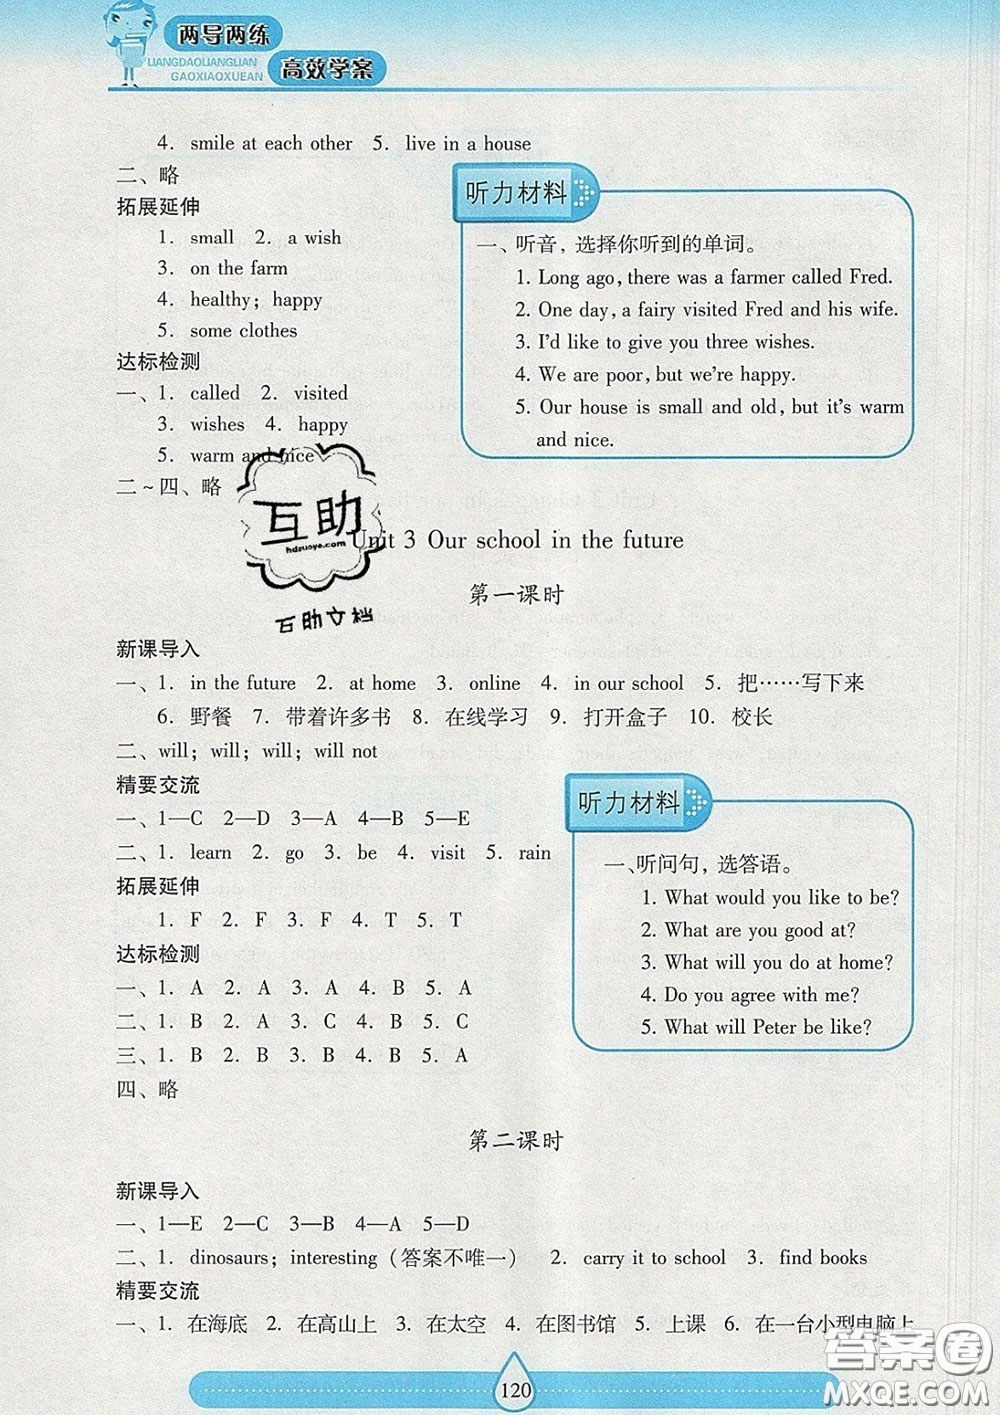 两导两练
LIANGDAOLIANGLIAN
GAOXIAOXUEAN
高效学案
4. smile at each other  5. live in a house
二、略
拓展延伸
1. small  2. a wish
3. on the farm
4. healthy; happy
5. some clothes
达标检测
一、1. called  2. visited
3. wishes  4. happy
5. warm and nice
二~四、略
听力材料
一、听音，选择你听到的单词。
1. Long ago, there was a farmer called Fred.
2. One day, a fairy visited Fred and his wife.
3. I'd like to give you three wishes.
4. We are poor, but we're happy.
5. Our house is small and old, but it's warm
and nice.
互助
hdzuoye.com
互助文档
Unit 3 Our school in the future
第一课时
新课导入
一、1. in the future  2. at home  3. online  4. in our school  5. 把……写下来
6. 野餐  7. 带着许多书  8. 在线学习  9. 打开盒子  10. 校长
二、will; will; will; will not
精要交流
一、1—C  2—D  3—A  4—B  5—E
二、1. learn  2. go  3. be  4. visit  5. rain
拓展延伸
1. F  2. F  3. F  4. T  5. T
达标检测
一、1. A  2. A  3. A  4. B  5. A
二、1. B  2. A  3. C  4. B  5. C
三、1. B  2. B  3. B  4. B  5. A
四、略
听力材料
一、听问句，选答语。
1. What would you like to be?
2. What are you good at?
3. What will you do at home?
4. Do you agree with me?
5. What will Peter be like?
第二课时
新课导入
一、1—E  2—C  3—B  4—A  5—D
二、1. dinosaurs; interesting（答案不唯一）  2. carry it to school  3. find books
精要交流
一、1. 在海底  2. 在高山上  3. 在太空  4. 在图书馆  5. 上课  6. 在一台小型电脑上
120
答案圈
MXQE.COM